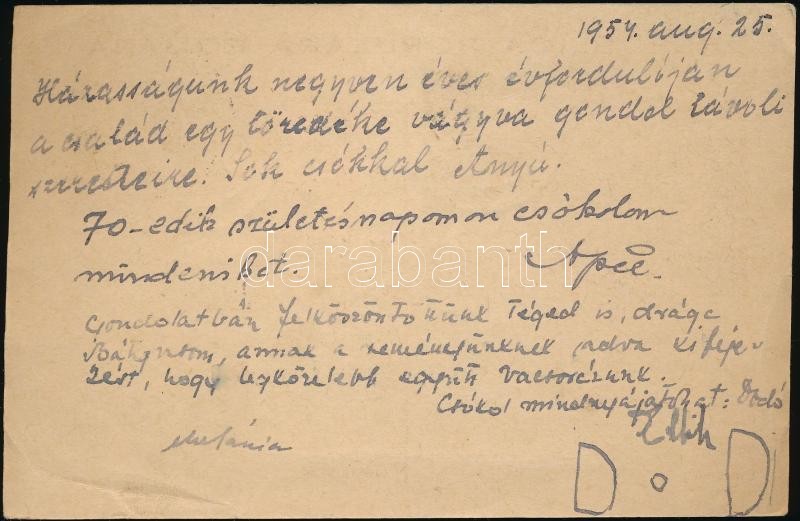 1954. aug. 25.
Házasságunk negyven éves évfordulóján
a család egy töredéke vágyva gondol távoli
szeretteire. Sok csókkal Anyú.
70-edik születésnapomon csókolom
mindenikit. Apu.
darabanth
Gondolatban felköszöntöttünk Téged is, drága
annak a reménységünknek adva kifeje-
zést, hogy legközelebb együtt vacsorázunk.
Csókol mindnyájatokat: Dodó
Melánia
D o D